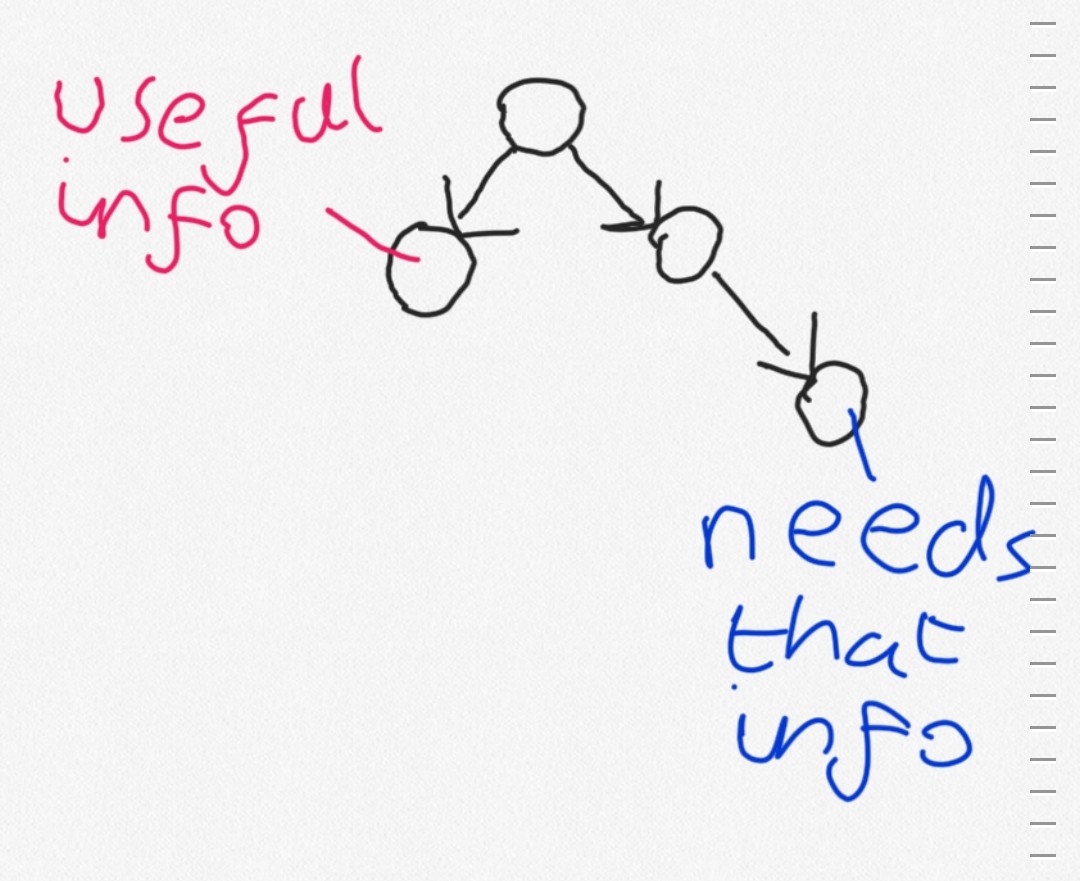 useful
info
needs
that
info